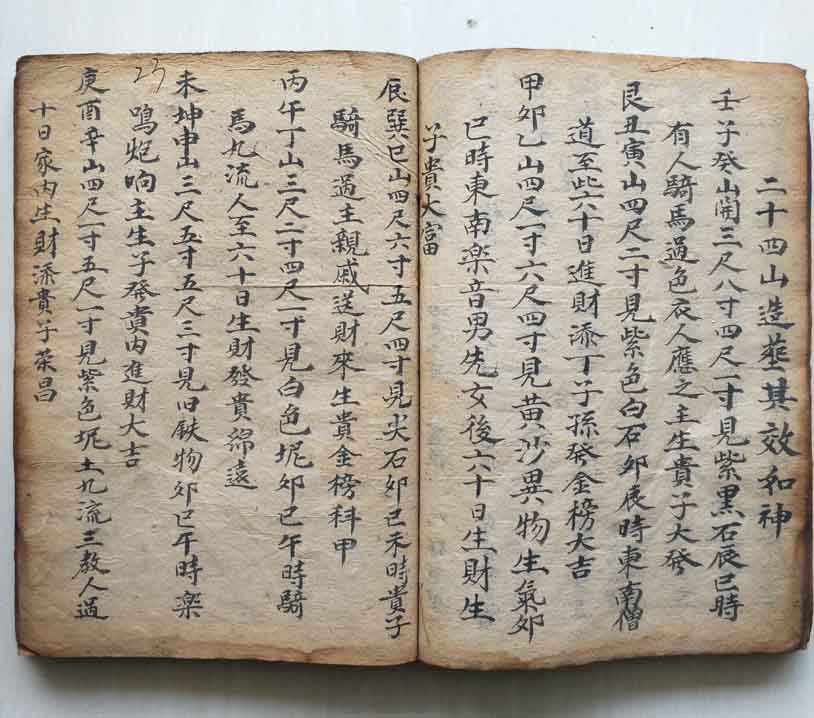 二十四山造塟其效如神
壬子癸山開三尺八寸四尺一寸見紫黑石辰巳時
有人騎馬過色衣人應之主生貴子大發
艮丑寅山四尺二寸見紫色白石卯辰時東南僧
道至些六十日進財添丁子孫發金榜大吉
甲卯乙山四尺一寸六尺四寸見黄沙異物生氣卯
巳時東南楽音男先女後六十日生財生
子貴大富
辰巽巳山四尺六寸五尺四寸見尖石卯巳未時貴子
騎馬過主親戚送財來生貴金榜科甲
丙午丁山三尺二寸四尺一寸見白色坭卯巳午時騎
馬九流人至六十日生財發貴綿遠
未坤申山三尺五寸五尺三寸見旧鉄物卯巳午時楽
鳴炮响主生子發貴内進財大吉
庚酉辛山四尺一寸五尺一寸見紫色坭土九流三教人過
十日家内生財添貴子荣昌